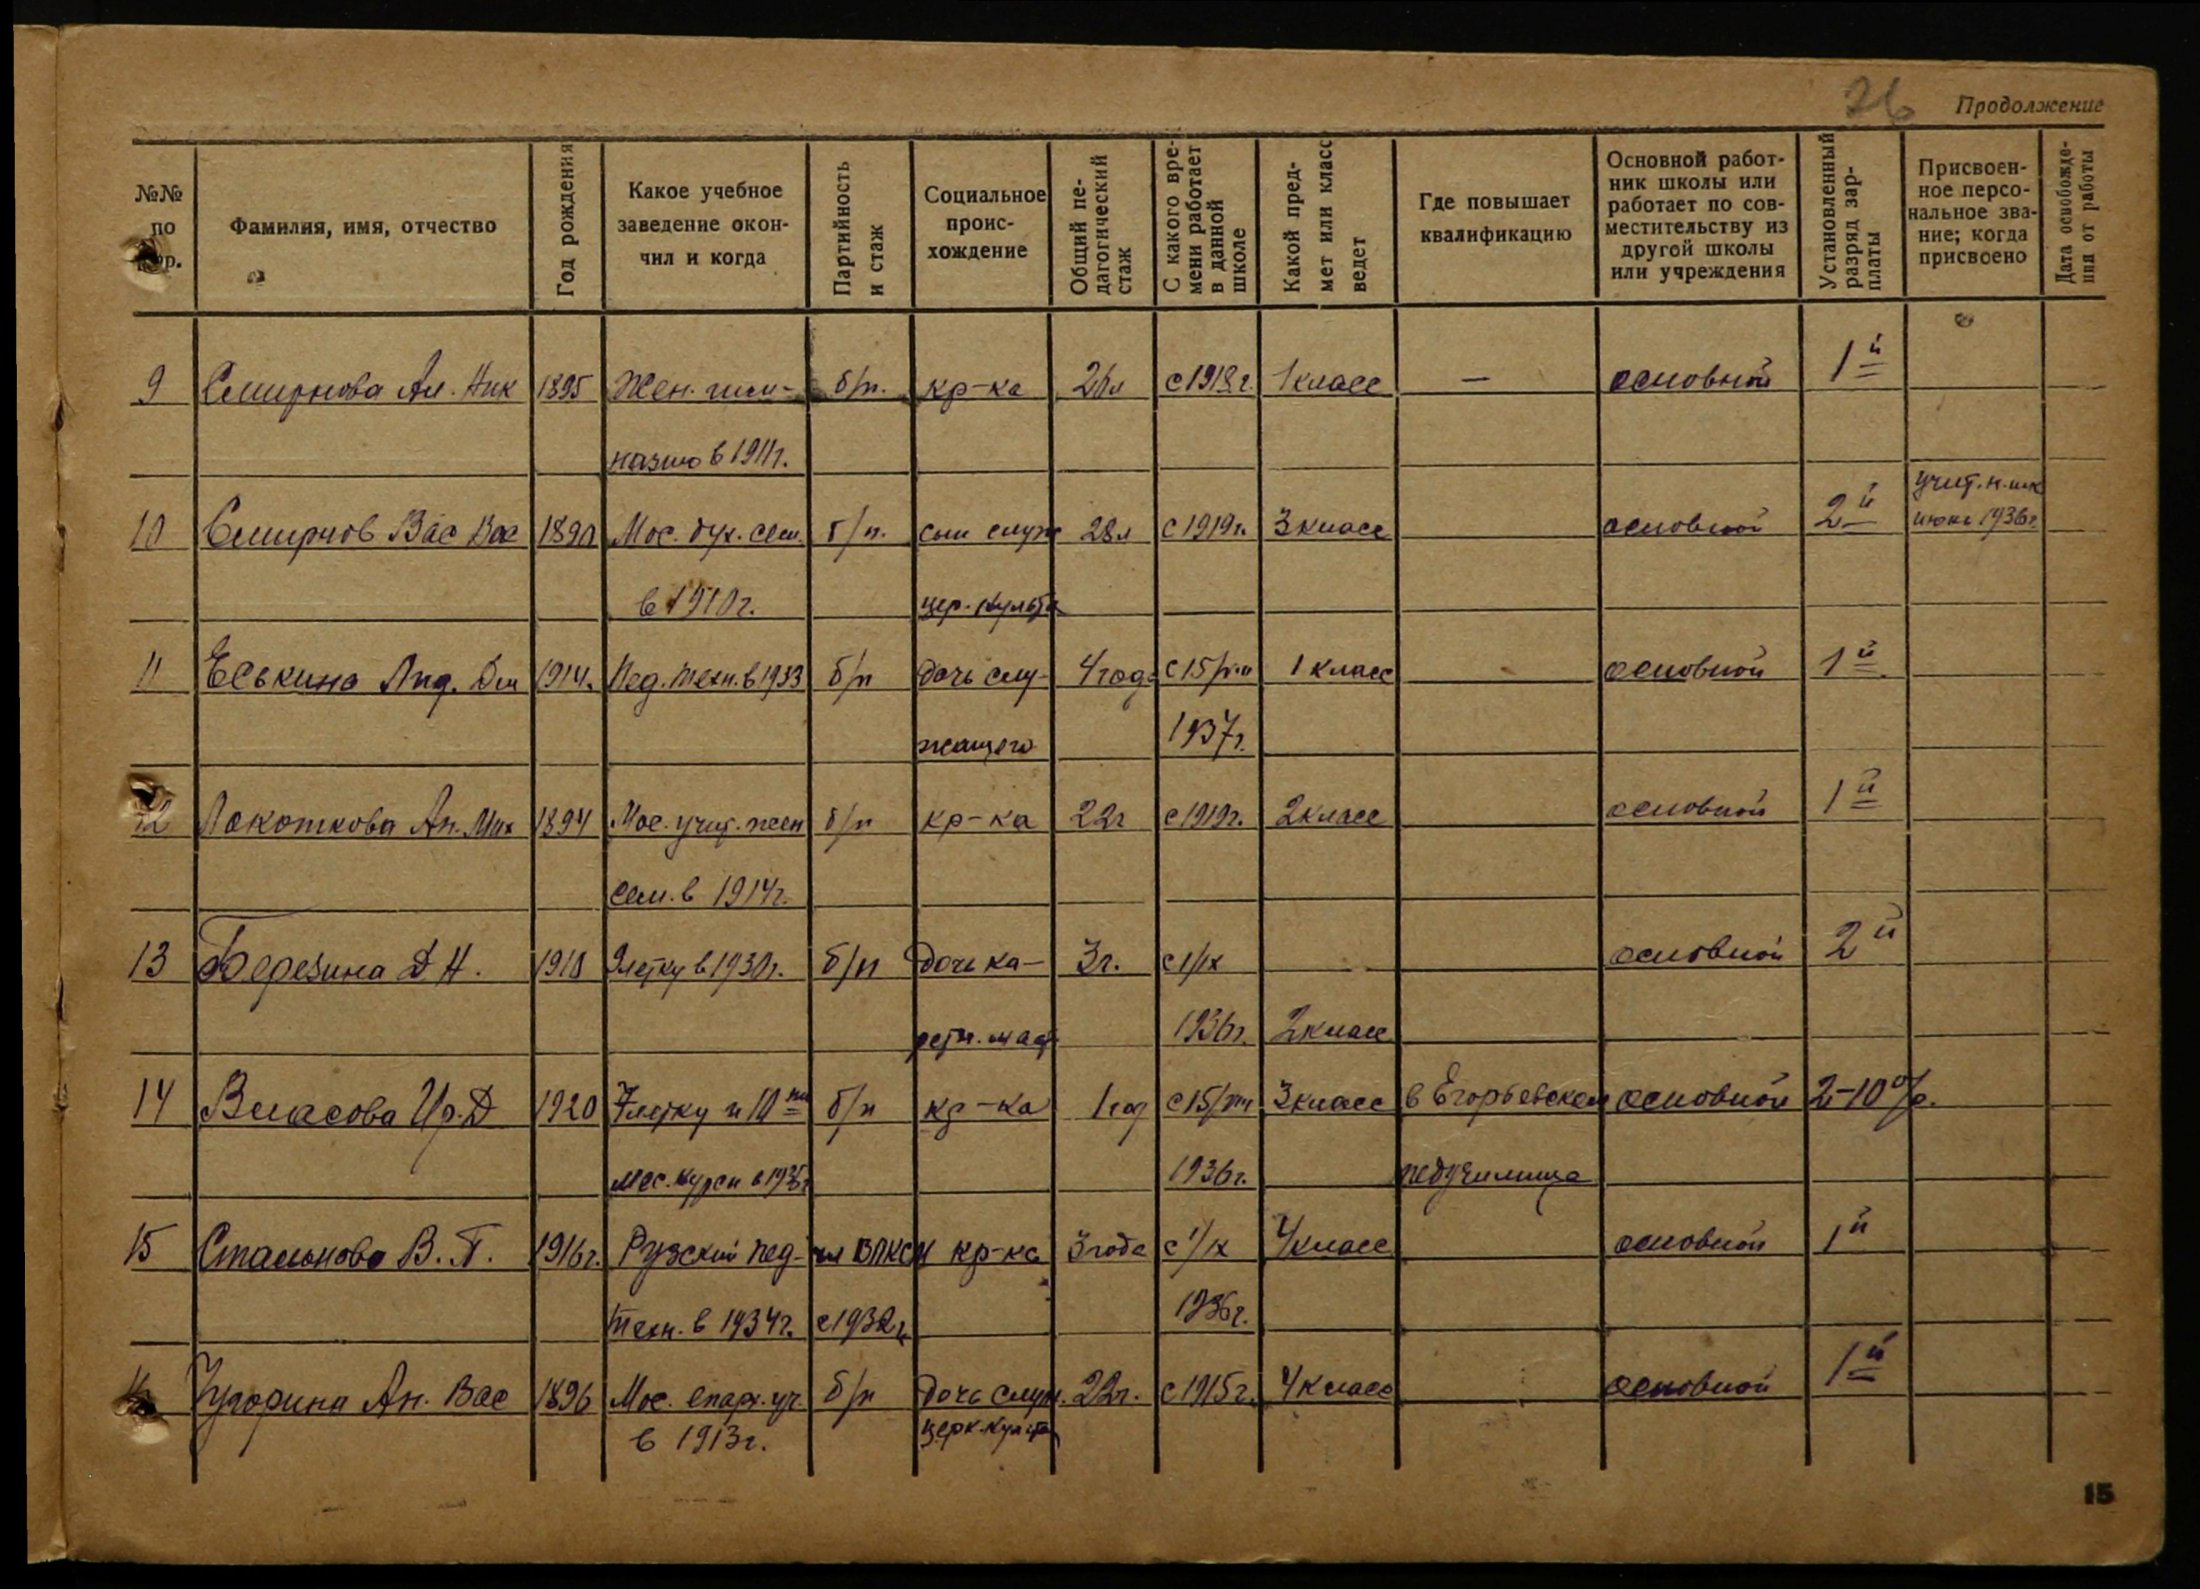 26
Продолжение
№№ по пор.
Фамилия, имя, отчество
Год рождения
Какое учебное заведение окончил и когда
Партийность и стаж
Социальное происхождение
Общий педагогический стаж
С какого времени работает в данной школе
Какой предмет или класс ведет
Где повышает квалификацию
Основной работник школы или работает по совместительству из другой школы или учреждения
Установленный разряд зарплаты
Присвоенное персональное звание; когда присвоено
Дата освобождения от работы
9 Смирнова Ан. Ник 1895 Жен. гим- б/п. кр-ка 26л с 1918г. 1 класс — основной 1й
назию в 1911г.
10 Смирнов Вас Вас 1890 Мос. дух. сем. б/п. сын служ 28л с 1919г. 3 класс основной 2й учит. н. шк
в 1910г. цер. культа июнь 1936г.
11 Еськина Лид. Дм 1914. Пед. техн. в 1933 б/п дочь слу- 4 года с 15/ 1 класс основной 1й
жащего 1937г.
12 Локоткова Ан. Мих 1894 Мос. учит. жен б/п кр-ка 22г с 1919г. 2 класс основной 1й
сем. в 1914г.
13 Березина Д Н. 1910 9летку в 1930г. б/п дочь ка- 3г. с 1/IX основной 2й
ретн. маст 1936г. 2 класс
14 Власова Ир. Д 1920 7летку и 10 ти б/п кр-ка 1 год с 15/ 3 класс в Егорьевском основной 2-10%.
мес. курсы в 1936г 1936г. педучилище
15 В. П. 1916г. Рузский пед- чл ВЛКСМ кр-ка 3 года с 1/IX 4 класс основной 1й
техн. в 1934г. с 1932г. 1936г.
16 Ан. Вас 1896 Мос. епарх. уч. б/п дочь служ. 22г. с 1915г. 4 класс основной 1й
в 1913г. церк. культа
15